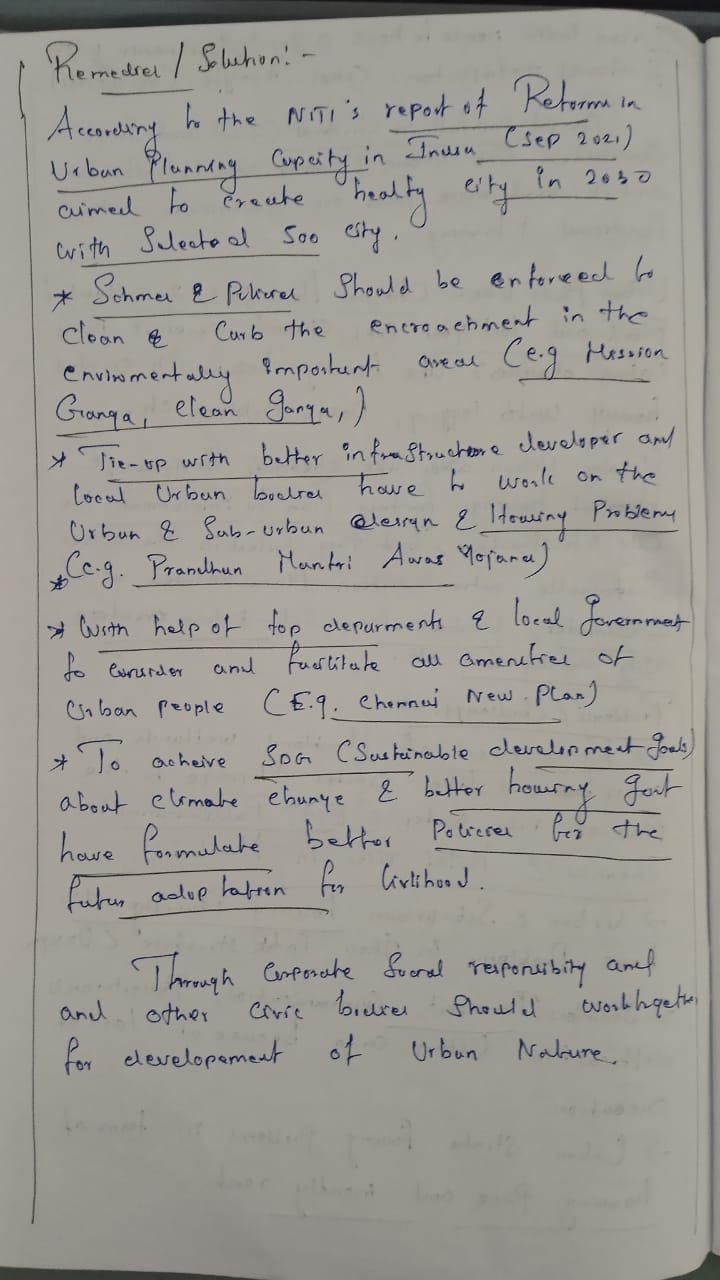 Remedies / Solution:-
According to the NITI's report of Reforms in
Urban Planning Capcity in India (Sep 2021)
aimed to create healty city in 2030
with Selected 500 city.
* Schmes & Policies Should be enforced to
clean & Curb the encroachment in the
envirnmentally important areas (e.g Mission
Ganga, clean ganga,)
* Tie-up with better infrastructure developer and
local Urban bodies have to work on the
Urban & Sub-urban design & Housing Problems
* (e.g. Prandhan Mantri Awas Yojana)
* With help of top deparments & local Government
to consider and facilitate all amenities of
Urban people (E.g. Chennai New Plan)
* To acheive SDG (Sustainable development goals)
about climate change & better housing govt
have formulate better Policies for the
futur adoptation for livlihood.
Through Corporate Social responsibity and
and other civic bodies should work together
for developement of Urban Nature.